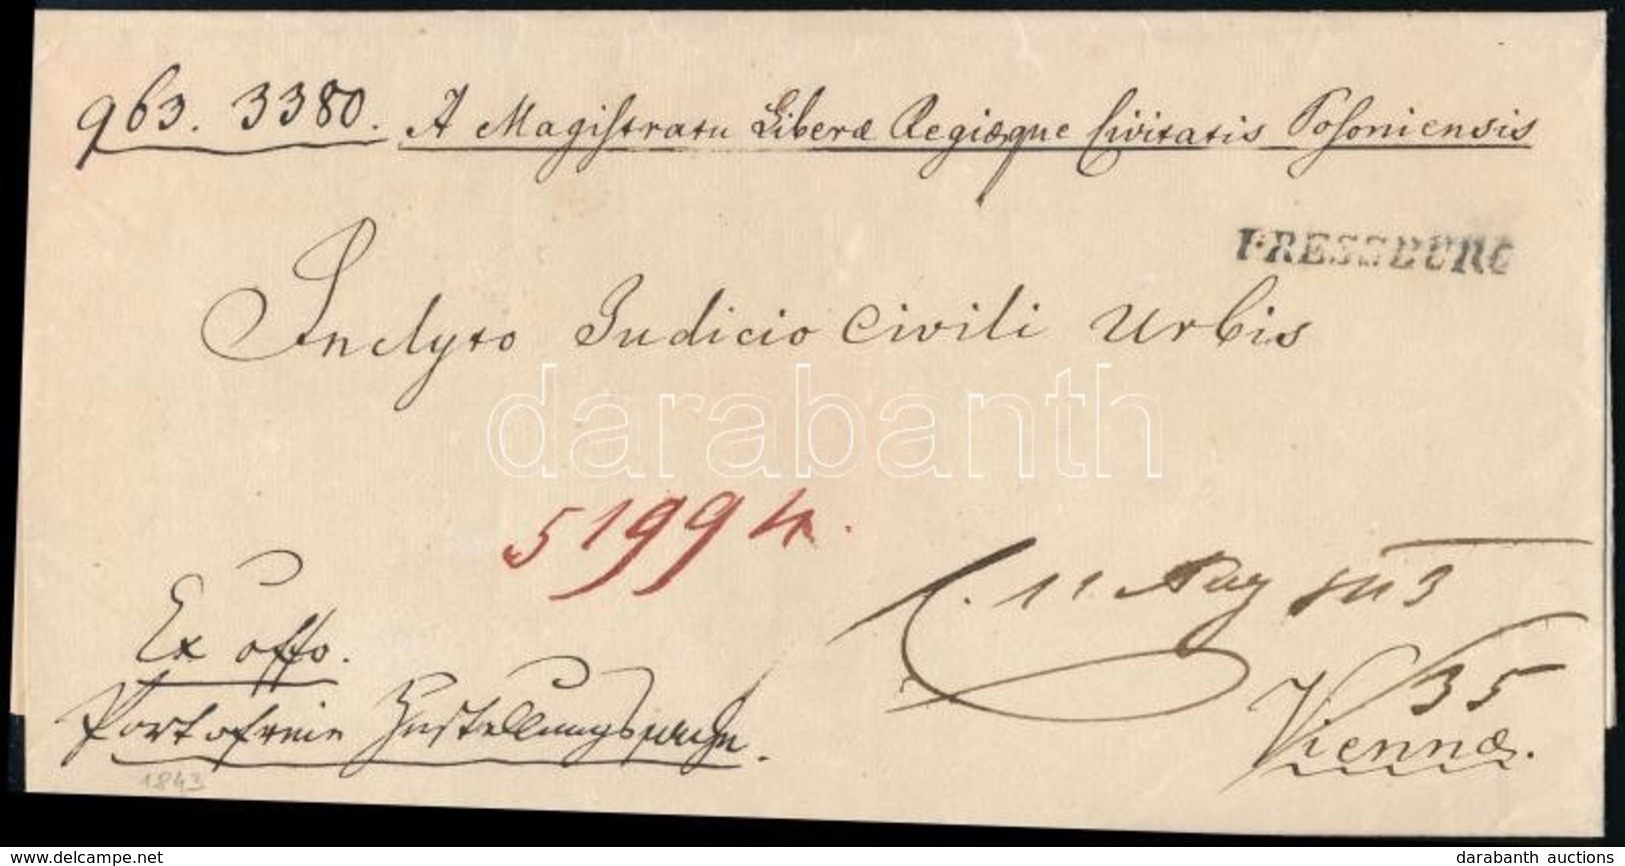 963. 3380. A Magistratu Liberæ Regiæque Civitatis Posoniensis
PRESSBURG
Inclyto Judicio Civili Urbis
darabanth
51994.
11 Aug 843
35
Ex offo.
Portofreie Zustellungssache.
Viennæ.
1843
www.darabanth.com
darabanth auctions